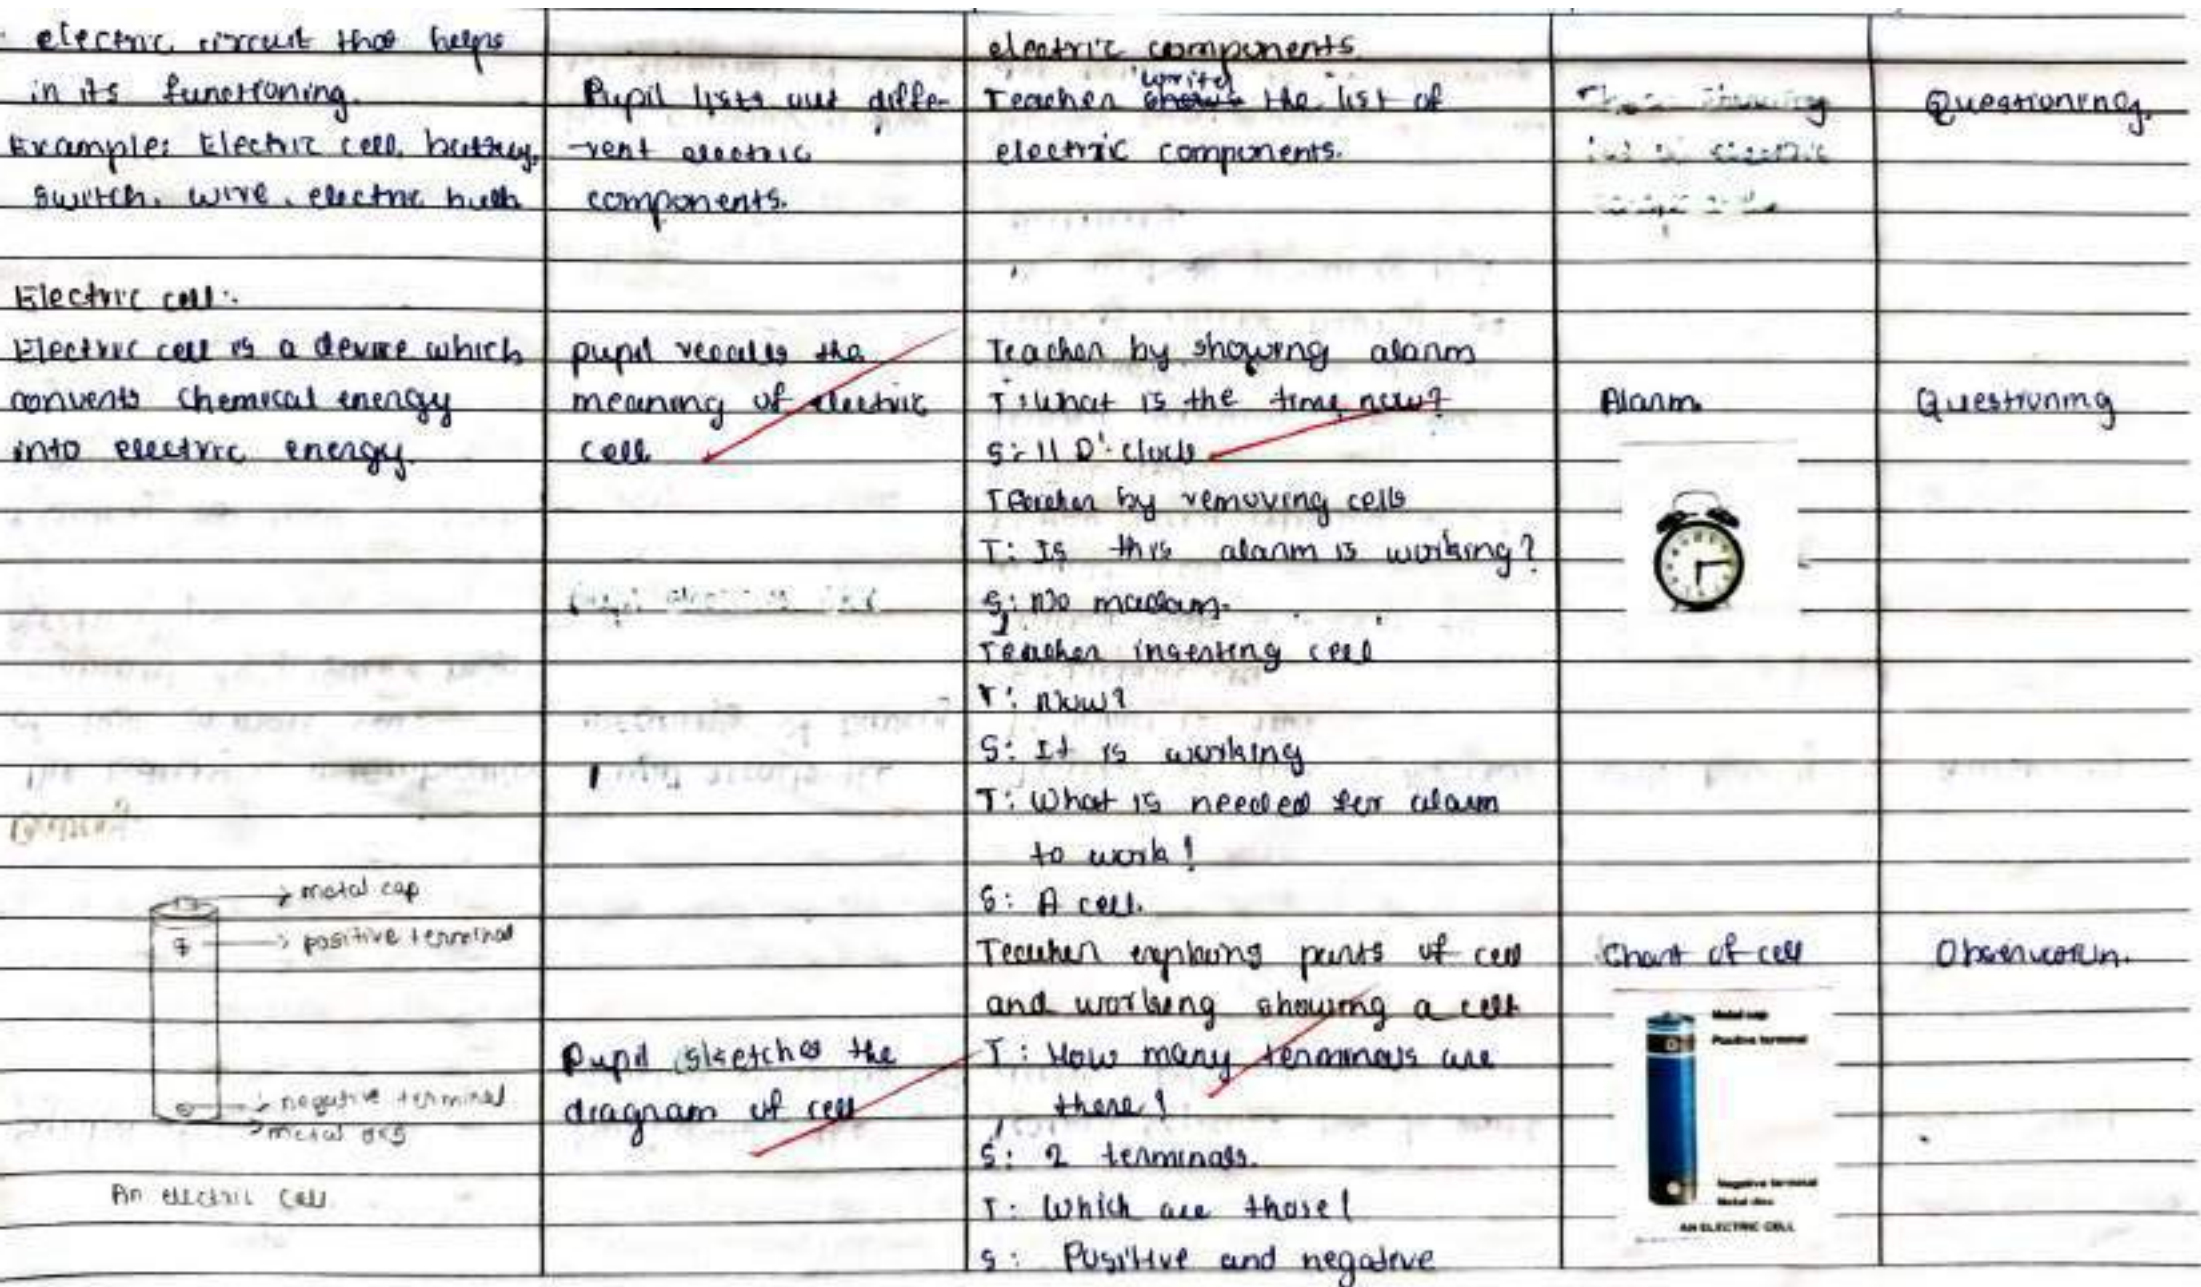 electric circuit that helps
in its functioning.
Example: Electric cell, battery,
switch, wire, electric bulb
Electric cell:
Electric cell is a device which
convents chemical energy
into electric energy.
metal cap
+
positive terminal
negative terminal
metal disg
An electric Cell
Pupil lists out diffe-
-rent electric
components.
pupil recalls the
meaning of electric
cell
Pupil sketches the
diagram of cell
electric components.
writes
Teacher shows the list of
electric components.
Teacher by showing alarm
T: What is the time now?
S: 11 O'clock
Teacher by removing cells
T: Is this alarm is working?
S: No madam.
Teacher inserting cell
T: Now?
S: It is working
T: What is needed for alarm
to work?
S: A cell.
Teacher explains parts of cell
and working showing a cell
T: How many terminals are
there?
S: 2 terminals.
T: Which are those?
S: Positive and negative
Alarm
Chart of cell
Metal cap
Positive terminal
Negative terminal
Metal disc
AN ELECTRIC CELL
Questioning.
Questioning
Observation.